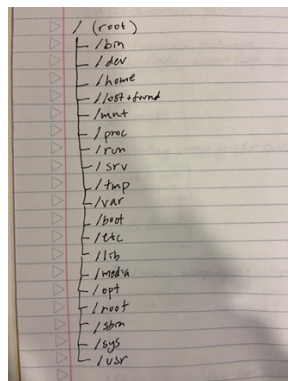 / (root)
/bin
/dev
/home
/lost+found
/mnt
/proc
/run
/srv
/tmp
/var
/boot
/etc
/lib
/media
/opt
/root
/sbin
/sys
/usr